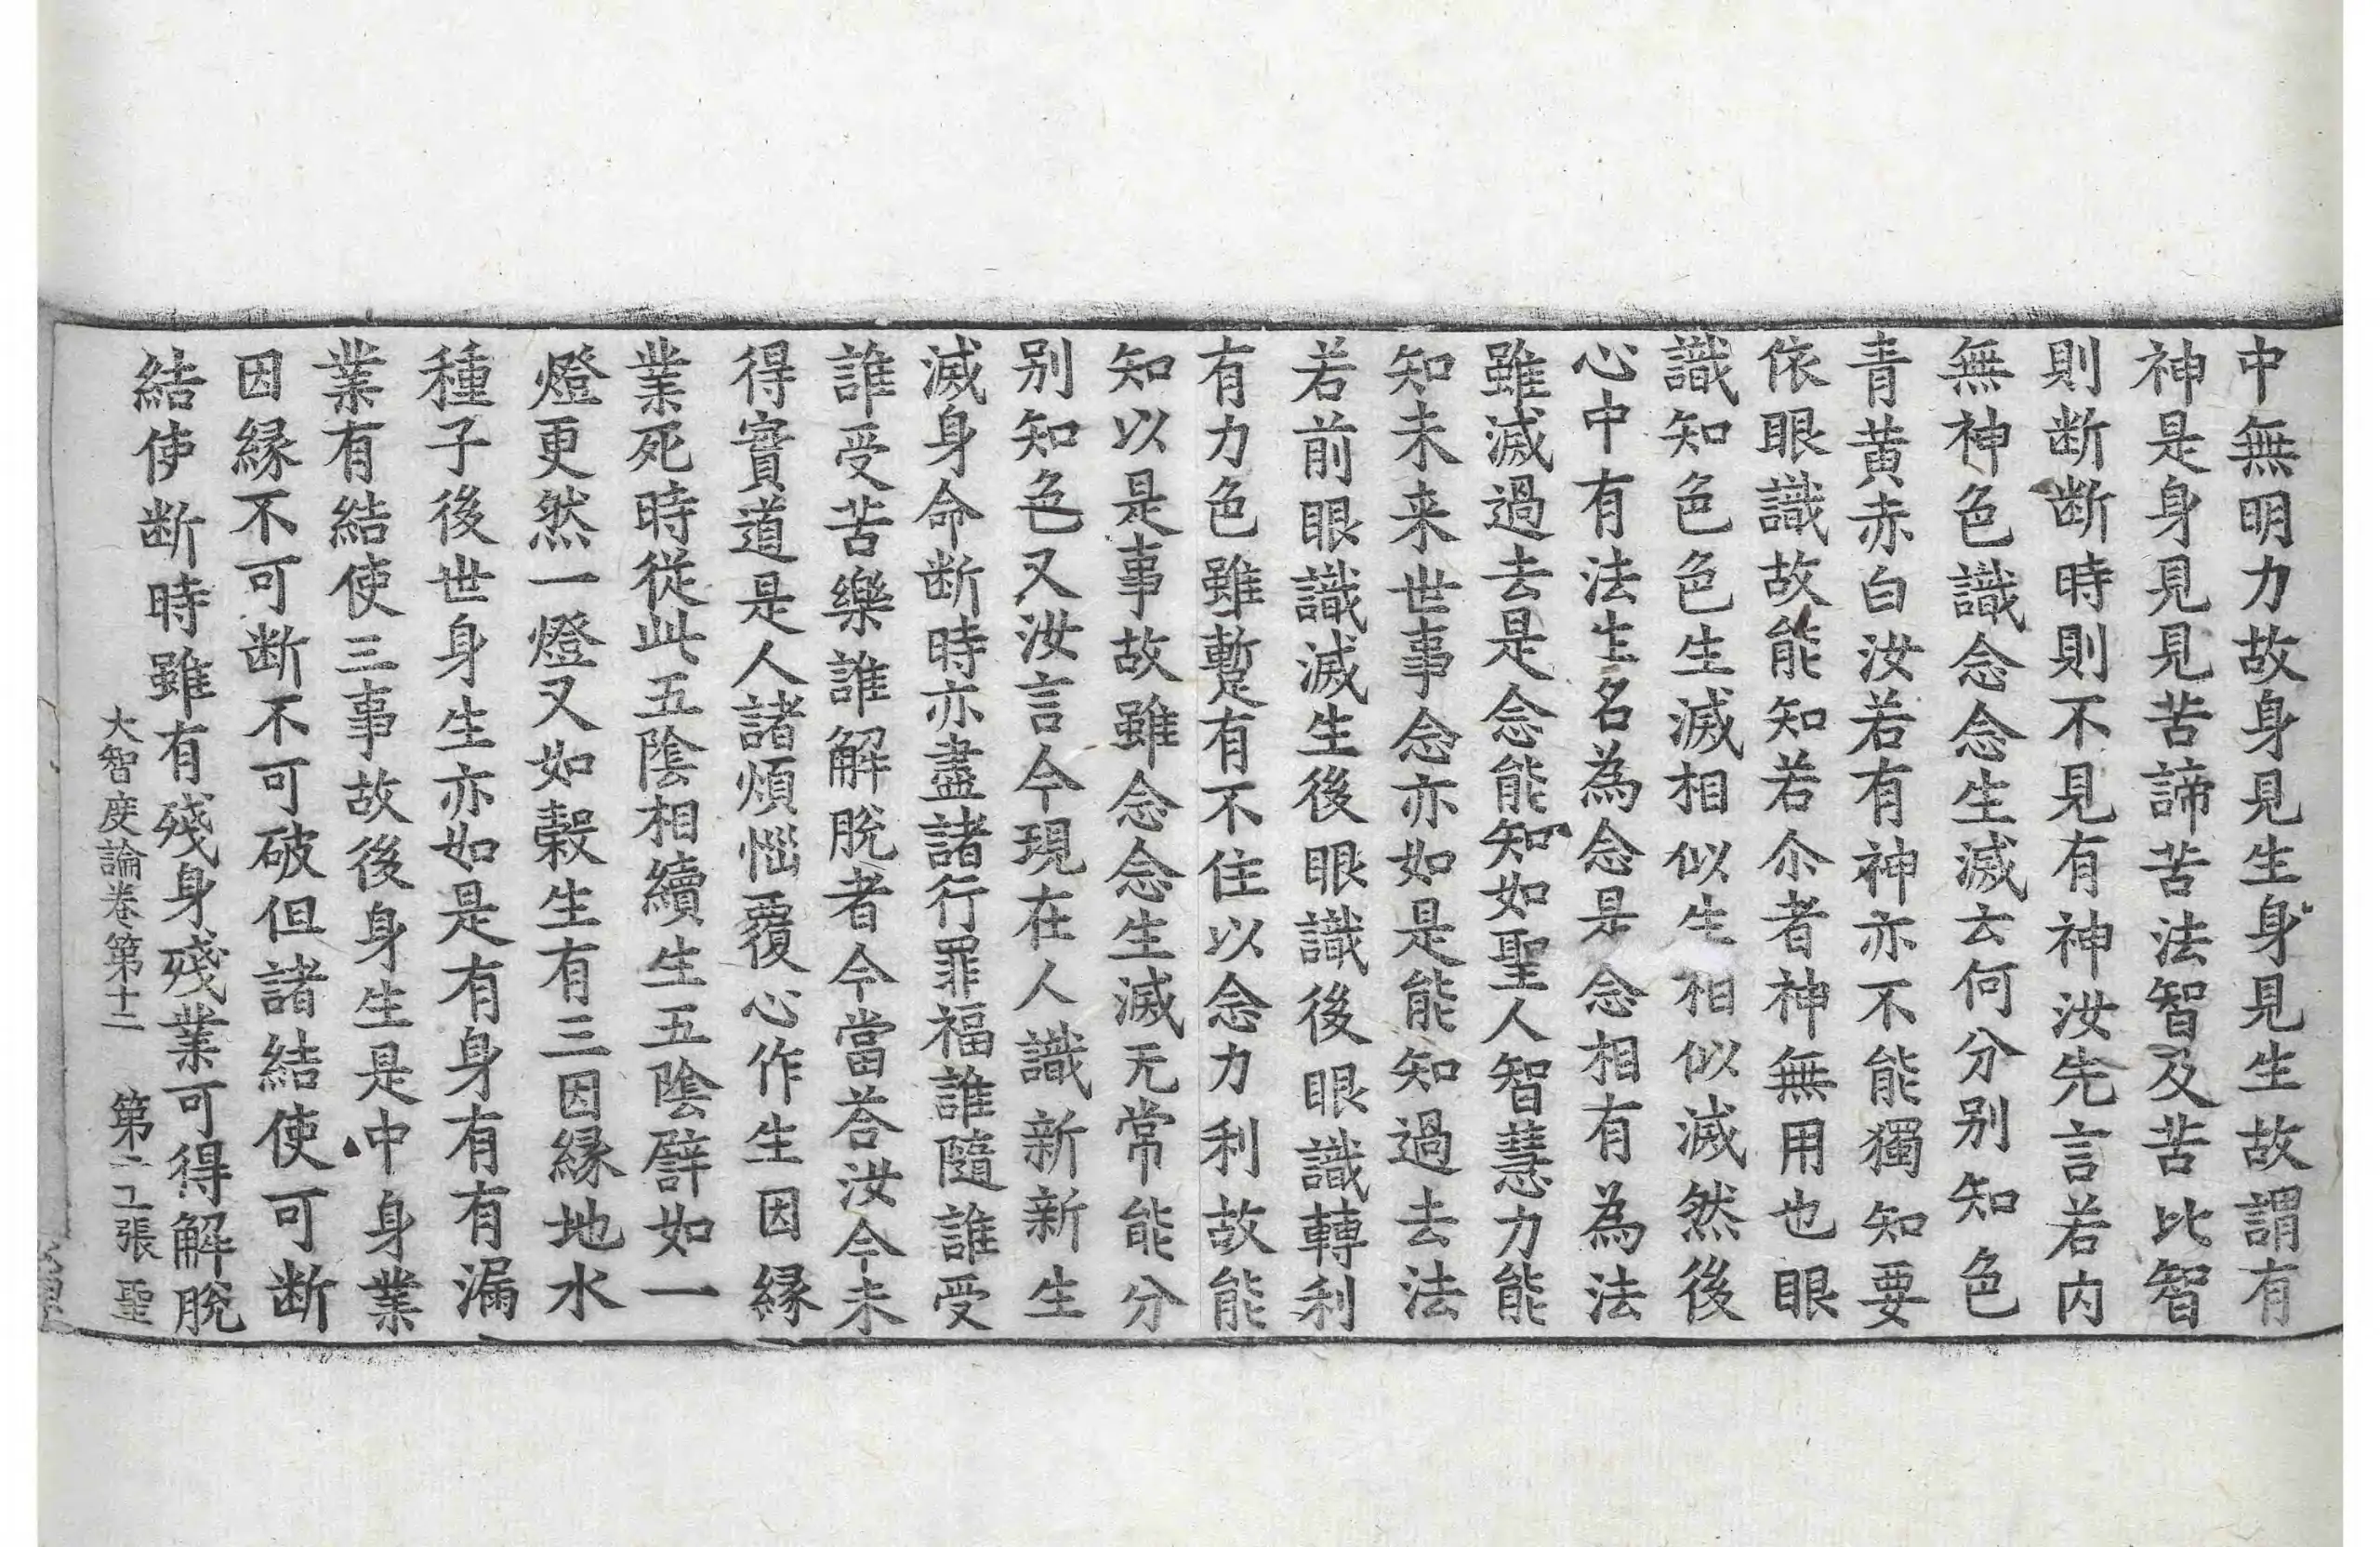 中無明力故身見生身見生故謂有
神是身見見苦諦苦法智及苦比智
則断断時則不見有神汝先言若内
無神色識念念生滅云何分别知色
青黄赤白汝若有神亦不能獨知要
依眼識故能知若尒者神無用也眼
識知色色生滅相似生相似滅然後
心中有法生名為念是念相有為法
雖滅過去是念能知如聖人智慧力能
知未来世事念念亦如是能知過去法
若前眼識滅生後眼識後眼識轉利
有力色雖蹔有不住以念力利故能
知以是事故雖念念生滅无常能分
别知色又汝言今現在人識新新生
滅身命断時亦盡諸行罪福誰隨誰受
誰受苦樂誰解脫者今當荅汝今未
得實道是人諸煩惱覆心作生因縁
業死時從此五陰相續生五陰譬如一
燈更然一燈又如榖生有三因縁地水
種子後世身生亦如是有身有有漏
業有結使三事故後身生是中身業
因縁不可断不可破但諸結使可断
結使断時雖有殘身殘業可得解脫
大智度論卷第十二 第二工張 聖